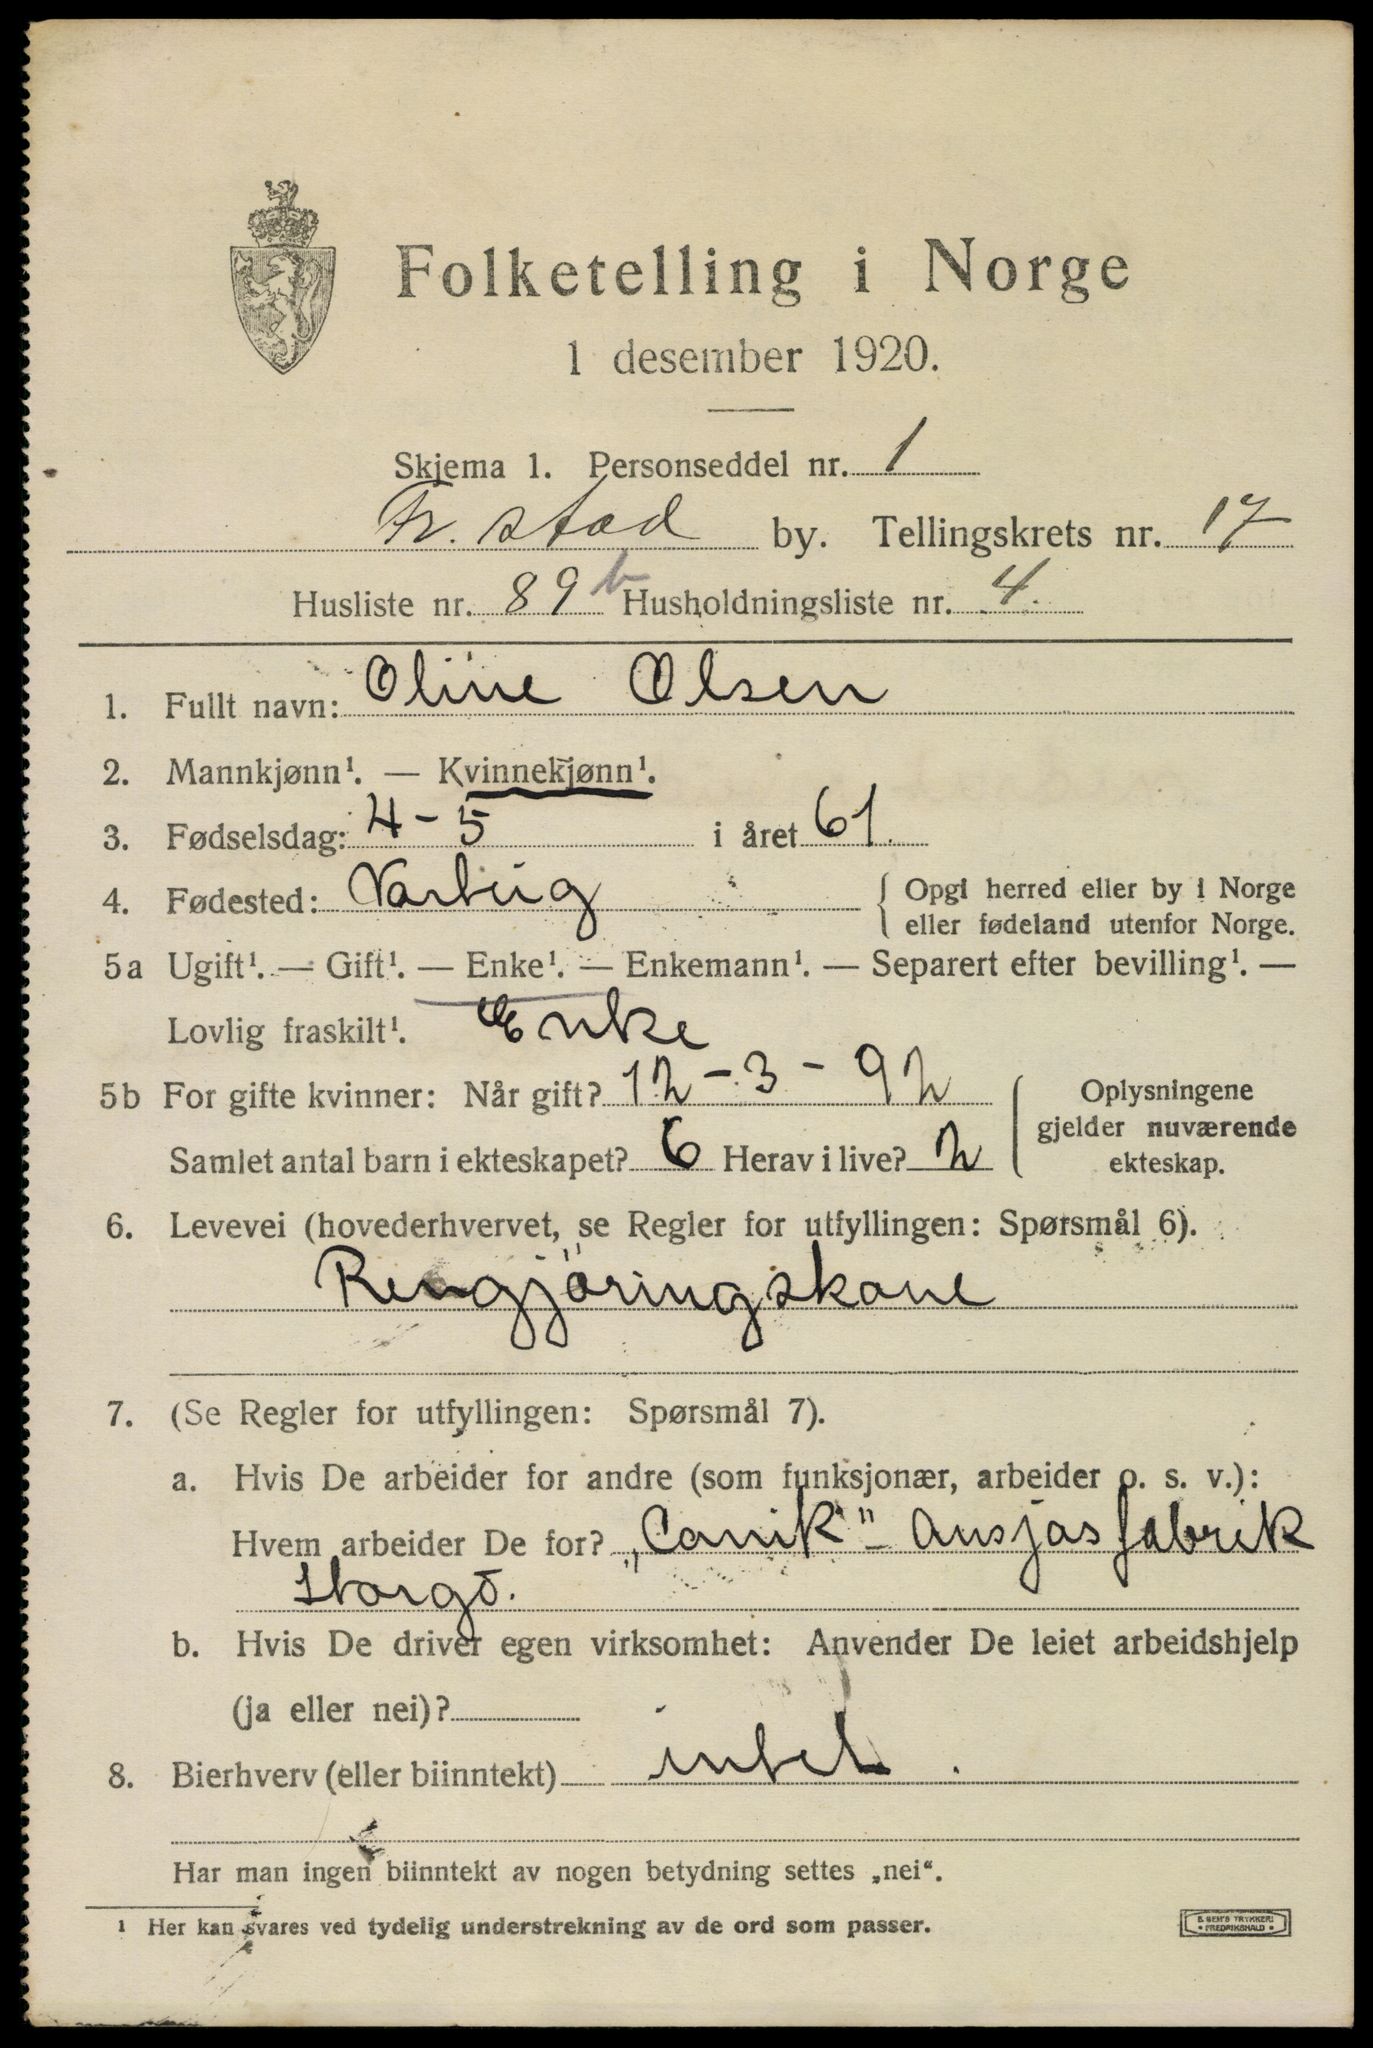 Folketelling i Norge
1 desember 1920.
Skjema 1. Personseddel nr. 1
Fr.stad by. Tellingskrets nr. 17
Husliste nr. 89 b Husholdningsliste nr. 4.
1. Fullt navn: Oline Olsen
2. Mannkjønn¹. — Kvinnekjønn¹.
3. Fødselsdag: 4-5 i året 61.
4. Fødested: { Opgi herred eller by i Norge
eller fødeland utenfor Norge.
5a Ugift¹. — Gift¹. — Enke¹. — Enkemann¹. — Separert efter bevilling¹. —
Lovlig fraskilt¹. Enke
5b For gifte kvinner: Når gift? 12-3-92
Samlet antal barn i ekteskapet? 6 Herav i live? 2
Oplysningene
gjelder nuværende
ekteskap.
6. Levevei (hovederhvervet, se Regler for utfyllingen: Spørsmål 6).
Rengjöringskone
7. (Se Regler for utfyllingen: Spørsmål 7).
a. Hvis De arbeider for andre (som funksjonær, arbeider o. s. v.):
Hvem arbeider De for? „Canik" Ansjosfabrik
b. Hvis De driver egen virksomhet: Anvender De leiet arbeidshjelp
(ja eller nei)?
8. Bierhverv (eller biinntekt) intet.
Har man ingen biinntekt av nogen betydning settes „nei“.
¹ Her kan svares ved tydelig understrekning av de ord som passer.
E. SEM'S TRYKKERI
• FREDRIKSHALD •